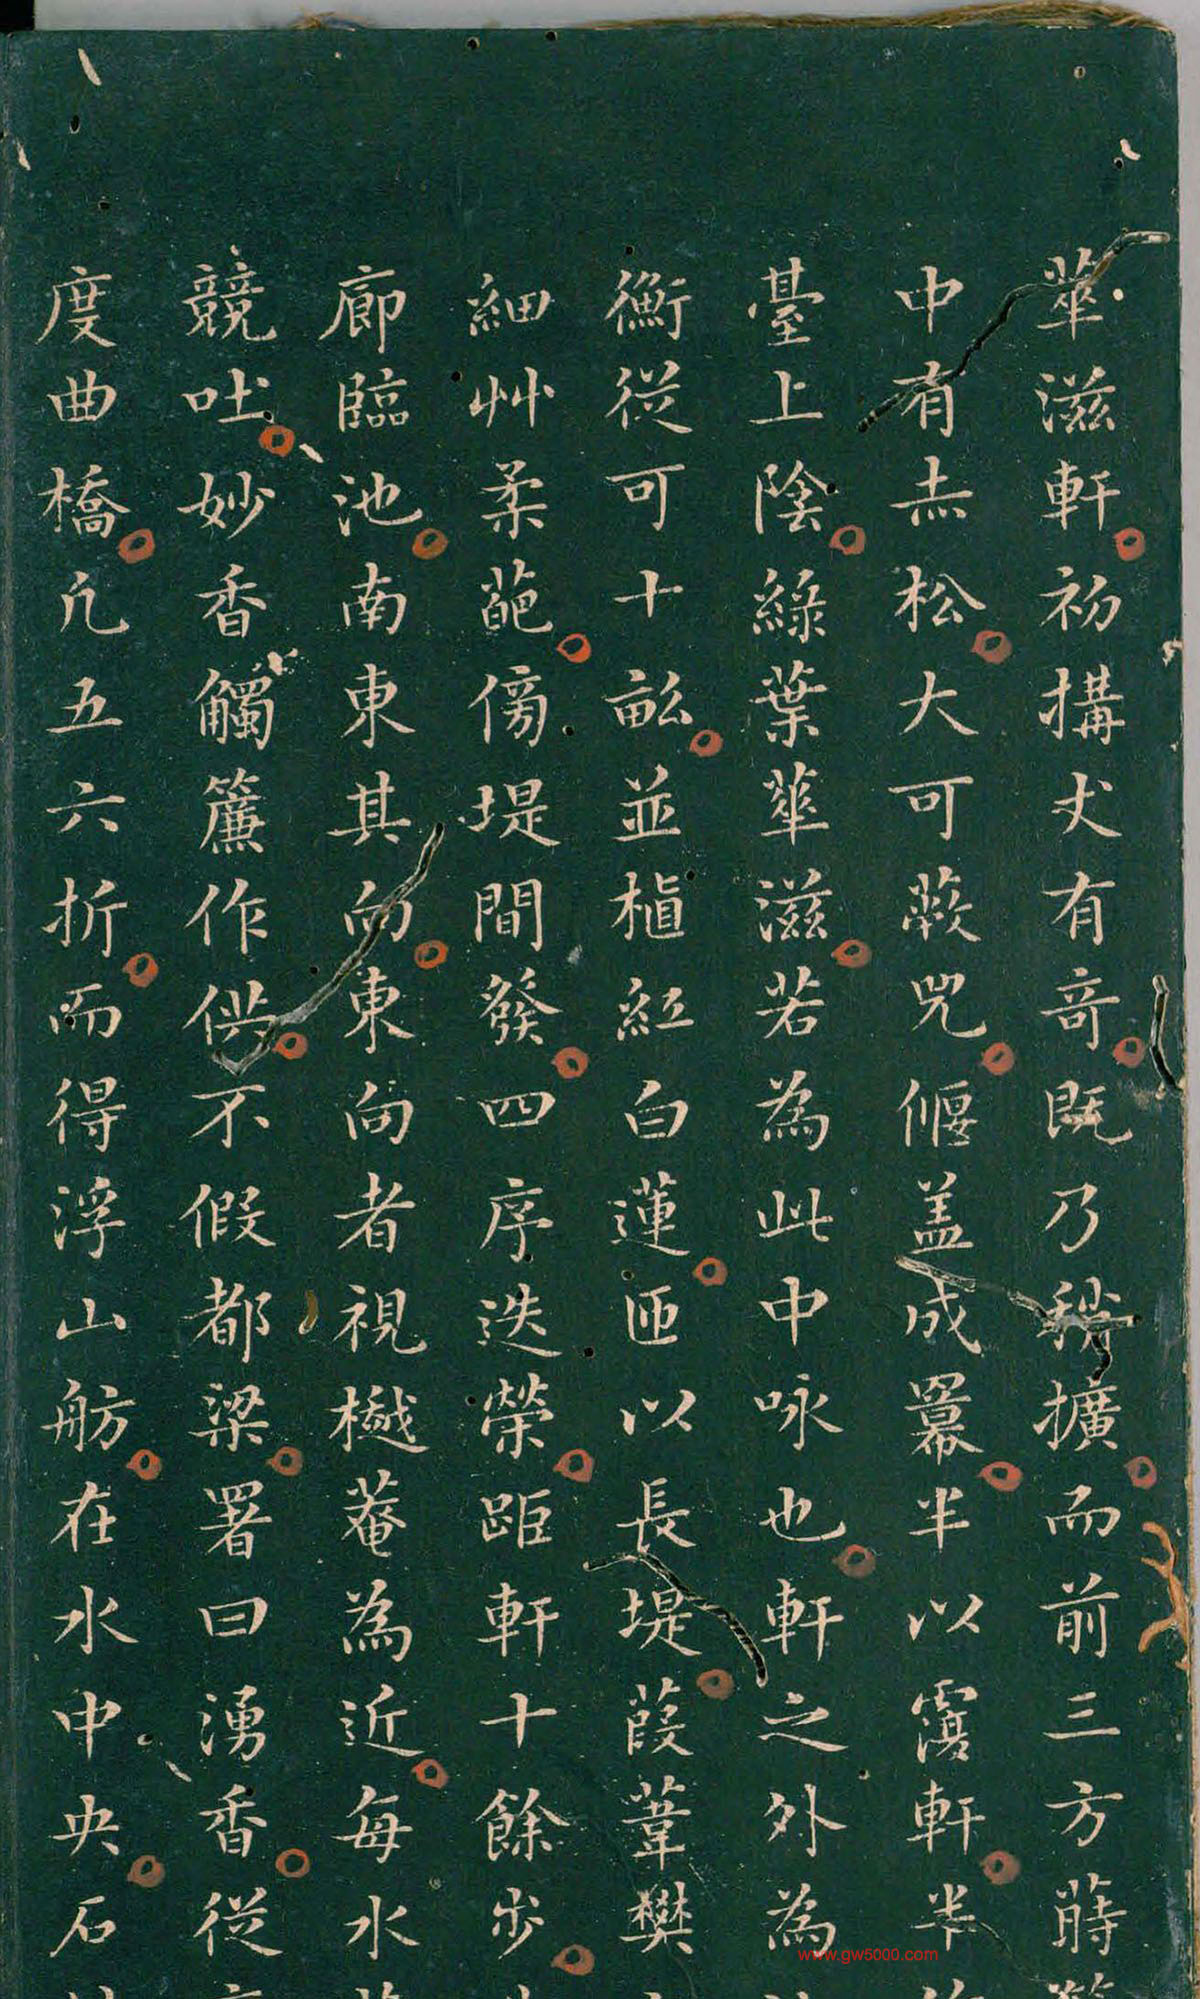 華滋軒初搆犬有竒既乃稍擴而前三方蒔
中有赤松大可蔽兕偃盖成羃半以覆軒半
臺上陰綠葉華滋若為此中咏也軒之外為
衡從可十畝並植紅白蓮匝以長堤葭葦樊
細艸柔葩傍堤間發四序迭榮距軒十餘步
廊臨池南東其向東向者視樾菴為近每水
競吐妙香觸簾作供不假都梁署曰湧香從
度曲橋凡五六折而得浮山舫在水中央石
www.gw5000.com